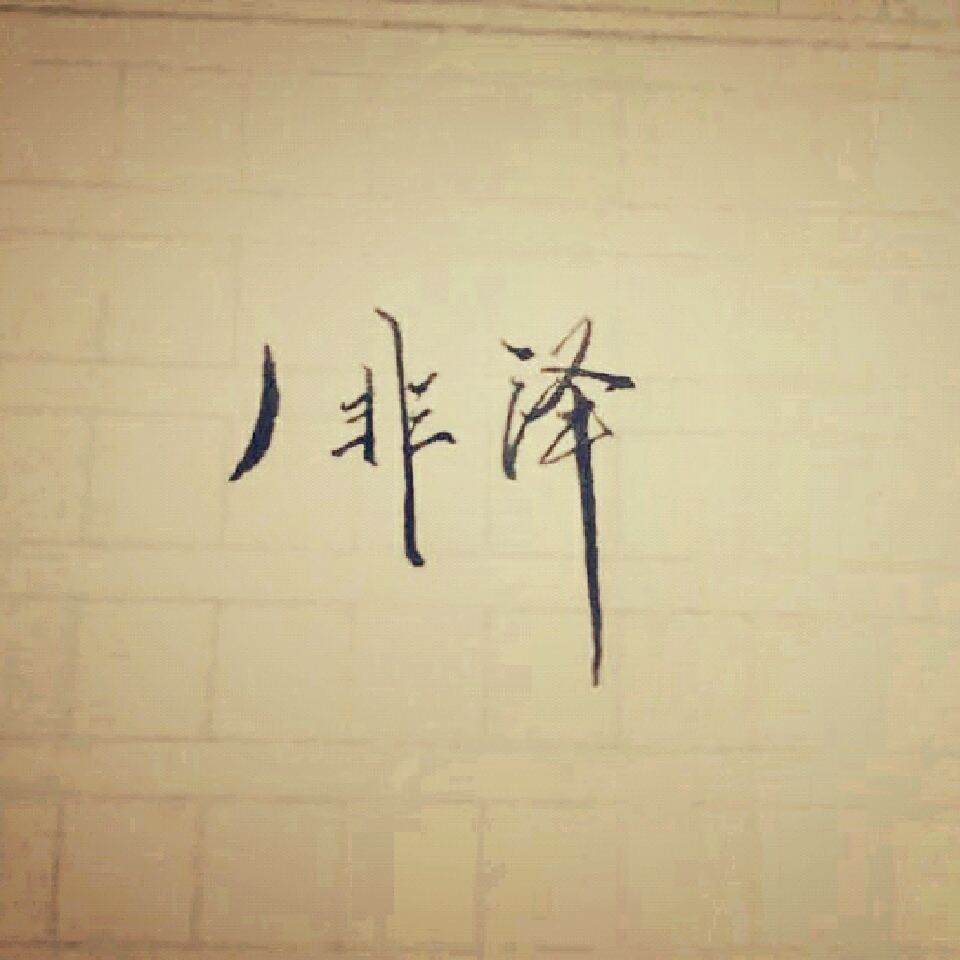 丿非泽